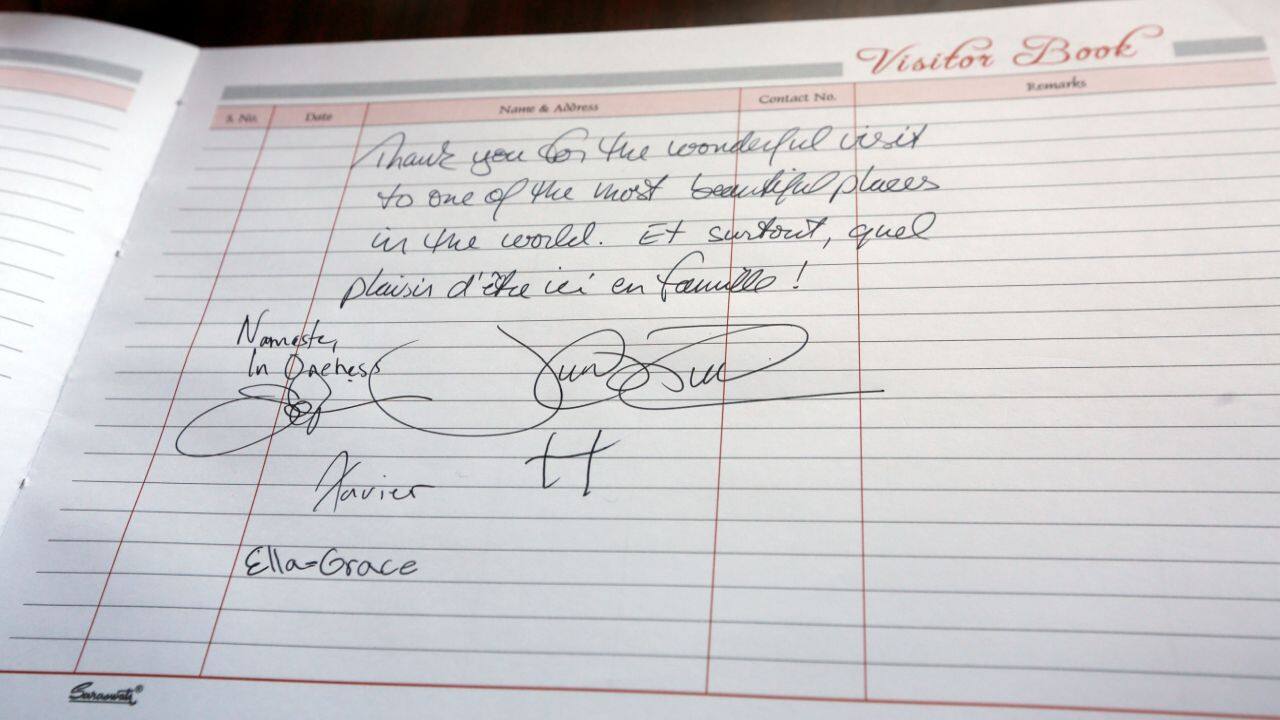 Visitor Book
S. No. Date Name & Address Contact No. Remarks
Thank you for the wonderful visit
to one of the most beautiful places
in the world. Et surtout, quel
plaisir d'être ici en famille !
Namaste,
In Oneness
Xavier
H
Ella-Grace
Saraswati®